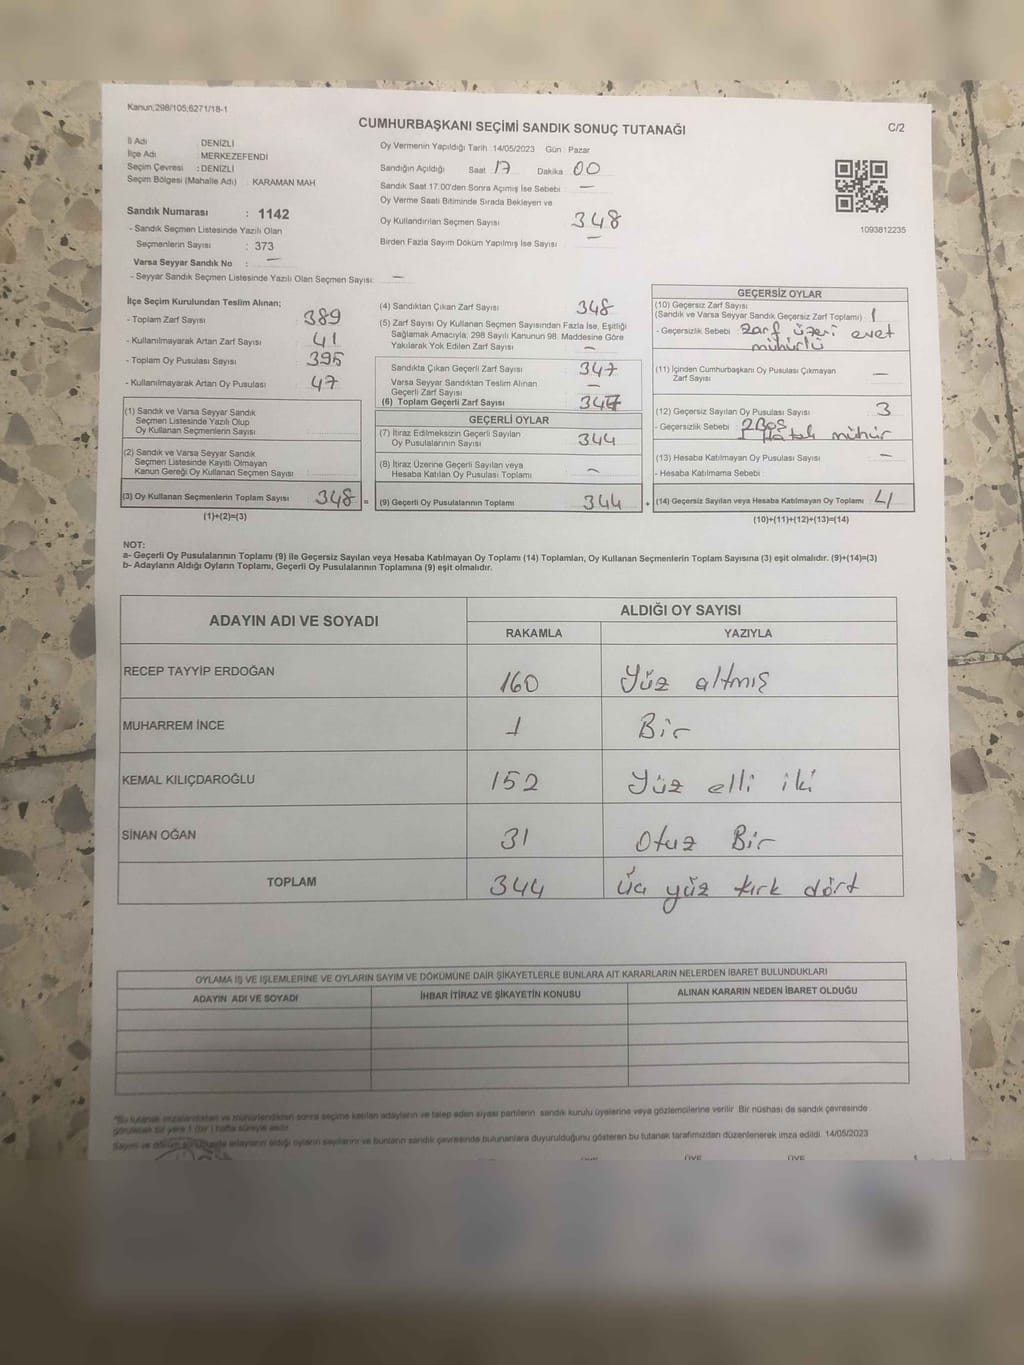 Kanun,298/105,6271/18-1
CUMHURBAŞKANI SEÇİMİ SANDIK SONUÇ TUTANAĞI
C/2
İl Adı DENİZLİ
İlçe Adı MERKEZEFENDİ
Seçim Çevresi : DENİZLİ
Seçim Bölgesi (Mahalle Adı) : KARAMAN MAH
Sandık Numarası : 1142
- Sandık Seçmen Listesinde Yazılı Olan
Seçmenlerin Sayısı : 373
Varsa Seyyar Sandık No : —
- Seyyar Sandık Seçmen Listesinde Yazılı Olan Seçmen Sayısı: —
Oy Vermenin Yapıldığı Tarih :14/05/2023 Gün : Pazar
Sandığın Açıldığı Saat 17 Dakika 00
Sandık Saat 17.00'den Sonra Açımış İse Sebebi —
Oy Verme Saati Bitiminde Sırada Bekleyen ve
Oy Kullandırılan Seçmen Sayısı 348
Birden Fazla Sayım Döküm Yapılmış İse Sayısı —
1093812235
İlçe Seçim Kurulundan Teslim Alınan;
- Toplam Zarf Sayısı 389
- Kullanılmayarak Artan Zarf Sayısı 41
- Toplam Oy Pusulası Sayısı 395
- Kullanılmayarak Artan Oy Pusulası 47
(1) Sandık ve Varsa Seyyar Sandık
Seçmen Listesinde Yazılı Olup
Oy Kullanan Seçmenlerin Sayısı
(2) Sandık ve Varsa Seyyar Sandık
Seçmen Listesinde Kayıtlı Olmayan
Kanun Gereği Oy Kullanan Seçmen Sayısı
(3) Oy Kullanan Seçmenlerin Toplam Sayısı 348 =
(1)+(2)=(3)
(4) Sandıktan Çıkan Zarf Sayısı 348
(5) Zarf Sayısı Oy Kullanan Seçmen Sayısından Fazla İse, Eşitliği
Sağlamak Amacıyla, 298 Sayılı Kanunun 98. Maddesine Göre
Yakılarak Yok Edilen Zarf Sayısı —
Sandıkta Çıkan Geçerli Zarf Sayısı 347
Varsa Seyyar Sandıktan Teslim Alınan
Geçerli Zarf Sayısı —
(6) Toplam Geçerli Zarf Sayısı 347
GEÇERLİ OYLAR
(7) İtiraz Edilmeksizin Geçerli Sayılan
Oy Pusulalarının Sayısı 344
(8) İtiraz Üzerine Geçerli Sayılan veya
Hesaba Katılan Oy Pusulası Toplamı —
(9) Geçerli Oy Pusulalarının Toplamı 344 +
GEÇERSİZ OYLAR
(10) Geçersiz Zarf Sayısı
(Sandık ve Varsa Seyyar Sandık Geçersiz Zarf Toplamı) 1
- Geçersizlik Sebebi : Zarf üzeri evet
mühürlü
(11) İçinden Cumhurbaşkanı Oy Pusulası Çıkmayan
Zarf Sayısı —
(12) Geçersiz Sayılan Oy Pusulası Sayısı 3
- Geçersizlik Sebebi : 2 Boş
mühür
(13) Hesaba Katılmayan Oy Pusulası Sayısı —
- Hesaba Katılmama Sebebi
(14) Geçersiz Sayılan veya Hesaba Katılmayan Oy Toplamı 4
(10)+(11)+(12)+(13)=(14)
NOT:
a- Geçerli Oy Pusulalarının Toplamı (9) ile Geçersiz Sayılan veya Hesaba Katılmayan Oy Toplamı (14) Toplamları, Oy Kullanan Seçmenlerin Toplam Sayısına (3) eşit olmalıdır. (9)+(14)=(3)
b- Adayların Aldığı Oyların Toplamı, Geçerli Oy Pusulalarının Toplamına (9) eşit olmalıdır.
ADAYIN ADI VE SOYADI ALDIĞI OY SAYISI
RAKAMLA YAZIYLA
RECEP TAYYİP ERDOĞAN 160 Yüz altmış
MUHARREM İNCE 1 Bir
KEMAL KILIÇDAROĞLU 152 Yüz elli iki
SİNAN OĞAN 31 Otuz Bir
TOPLAM 344 üç yüz kırk dört
OYLAMA İŞ VE İŞLEMLERİNE VE OYLARIN SAYIM VE DÖKÜMÜNE DAİR ŞİKAYETLERLE BUNLARA AİT KARARLARIN NELERDEN İBARET BULUNDUKLARI
ADAYIN ADI VE SOYADI İHBAR İTİRAZ VE ŞİKAYETİN KONUSU ALINAN KARARIN NEDEN İBARET OLDUĞU
*Bu tutanak imzalandıktan ve mühürlendikten sonra seçime katılan adayların ve talep eden siyasi partilerin sandık kurulu üyelerine veya gözlemcilerine verilir. Bir nüshası da sandık çevresinde
görülecek bir yere 1 (bir) hafta süreyle asılır.
Sayım ve döküm sonucunda adayların aldığı oyların sayılarını ve bunların sandık çevresinde bulunanlara duyurulduğunu gösteren bu tutanak tarafımızdan düzenlenerek imza edildi. 14/05/2023
ÜYE ÜYE